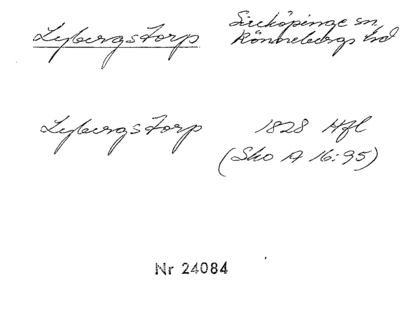 Lybergstorp Sireköpinge sn
Rönnebergs hd
Lybergstorp 1828 Hfl
(Sko A 16:95)
Nr 24084